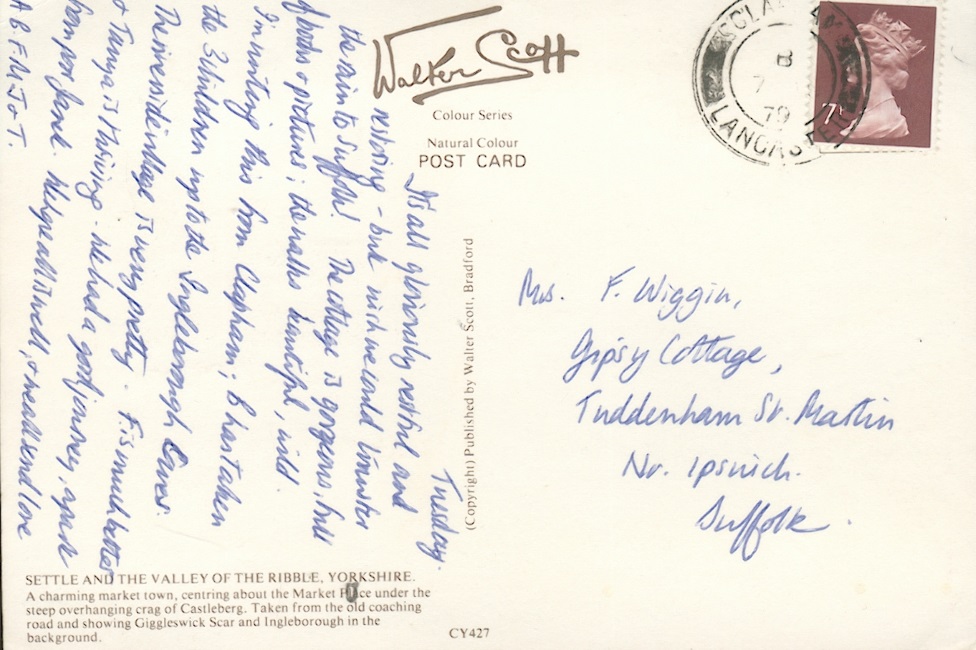 Walter Scott
Colour Series
Natural Colour
POST CARD
LANCASTER
7 79
7P
Tuesday.
It's all gloriously restful and
restoring - but wish we could transfer
the rain to Suffolk! The cottage is gorgeous, full
of books & pictures; the walks beautiful, wild.
I'm writing this from Clapham; B has taken
the 3 children up to the Ingleborough Caves.
The riverside village is very pretty. F. is much better
& Tanya is thriving. We had a good journey, apart
from port Janek. We hope all is well, & we all send love
A.B.F.M.J. & T.
Mrs. F. Wiggin,
Gipsy Cottage,
Tuddenham St. Martin
Nr. Ipswich.
Suffolk.
(Copyright) Published by Walter Scott, Bradford
SETTLE AND THE VALLEY OF THE RIBBLE, YORKSHIRE.
A charming market town, centring about the Market Place under the
steep overhanging crag of Castleberg. Taken from the old coaching
road and showing Giggleswick Scar and Ingleborough in the
background.
CY427